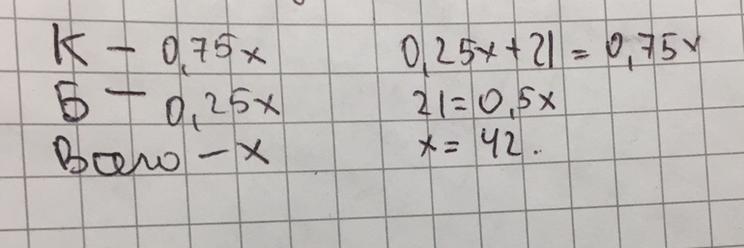 К – 0,75x
Б – 0,25x
Всего – x
0,25x + 21 = 0,75x
21 = 0,5x
x = 42.